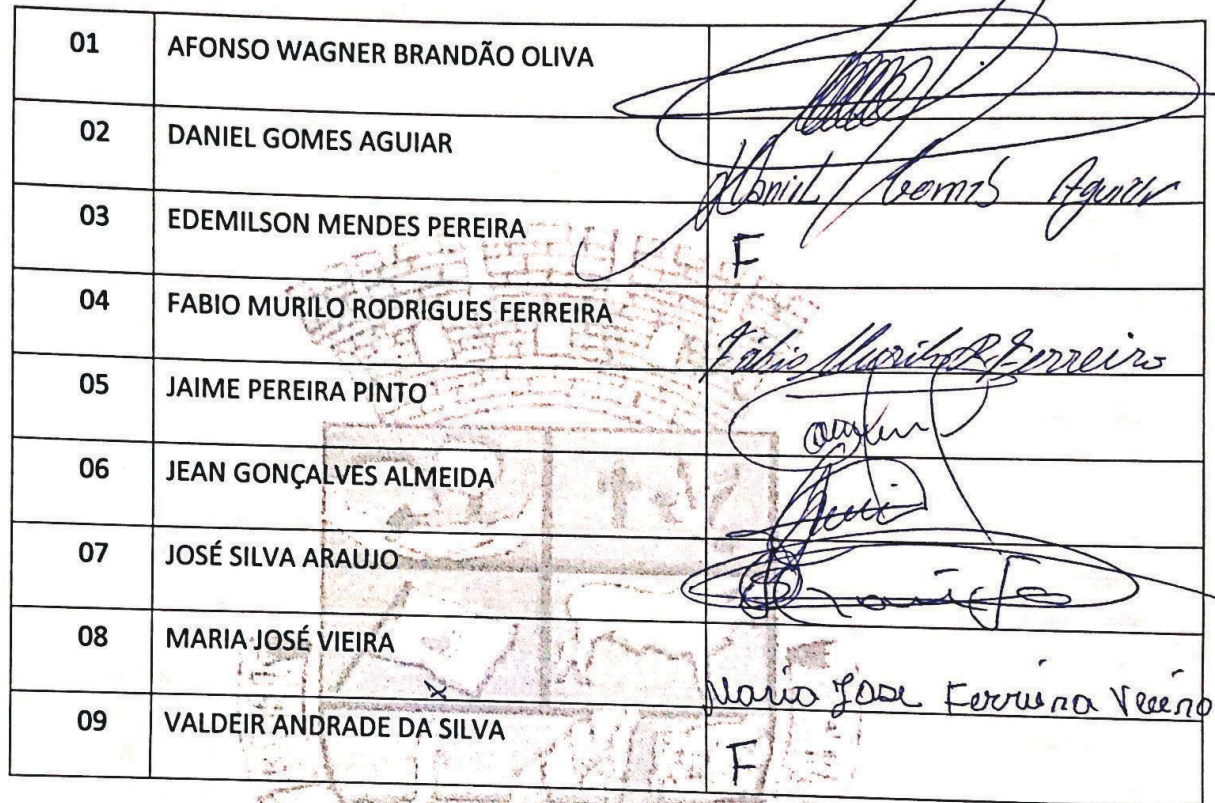 01 AFONSO WAGNER BRANDÃO OLIVA
02 DANIEL GOMES AGUIAR Daniel Gomes Aguiar
03 EDEMILSON MENDES PEREIRA F
04 FABIO MURILO RODRIGUES FERREIRA Fábio Murilo R. Ferreira
05 JAIME PEREIRA PINTO
06 JEAN GONÇALVES ALMEIDA
07 JOSÉ SILVA ARAUJO Araujo
08 MARIA JOSÉ VIEIRA Maria Jose Ferreira Vieira
09 VALDEIR ANDRADE DA SILVA F